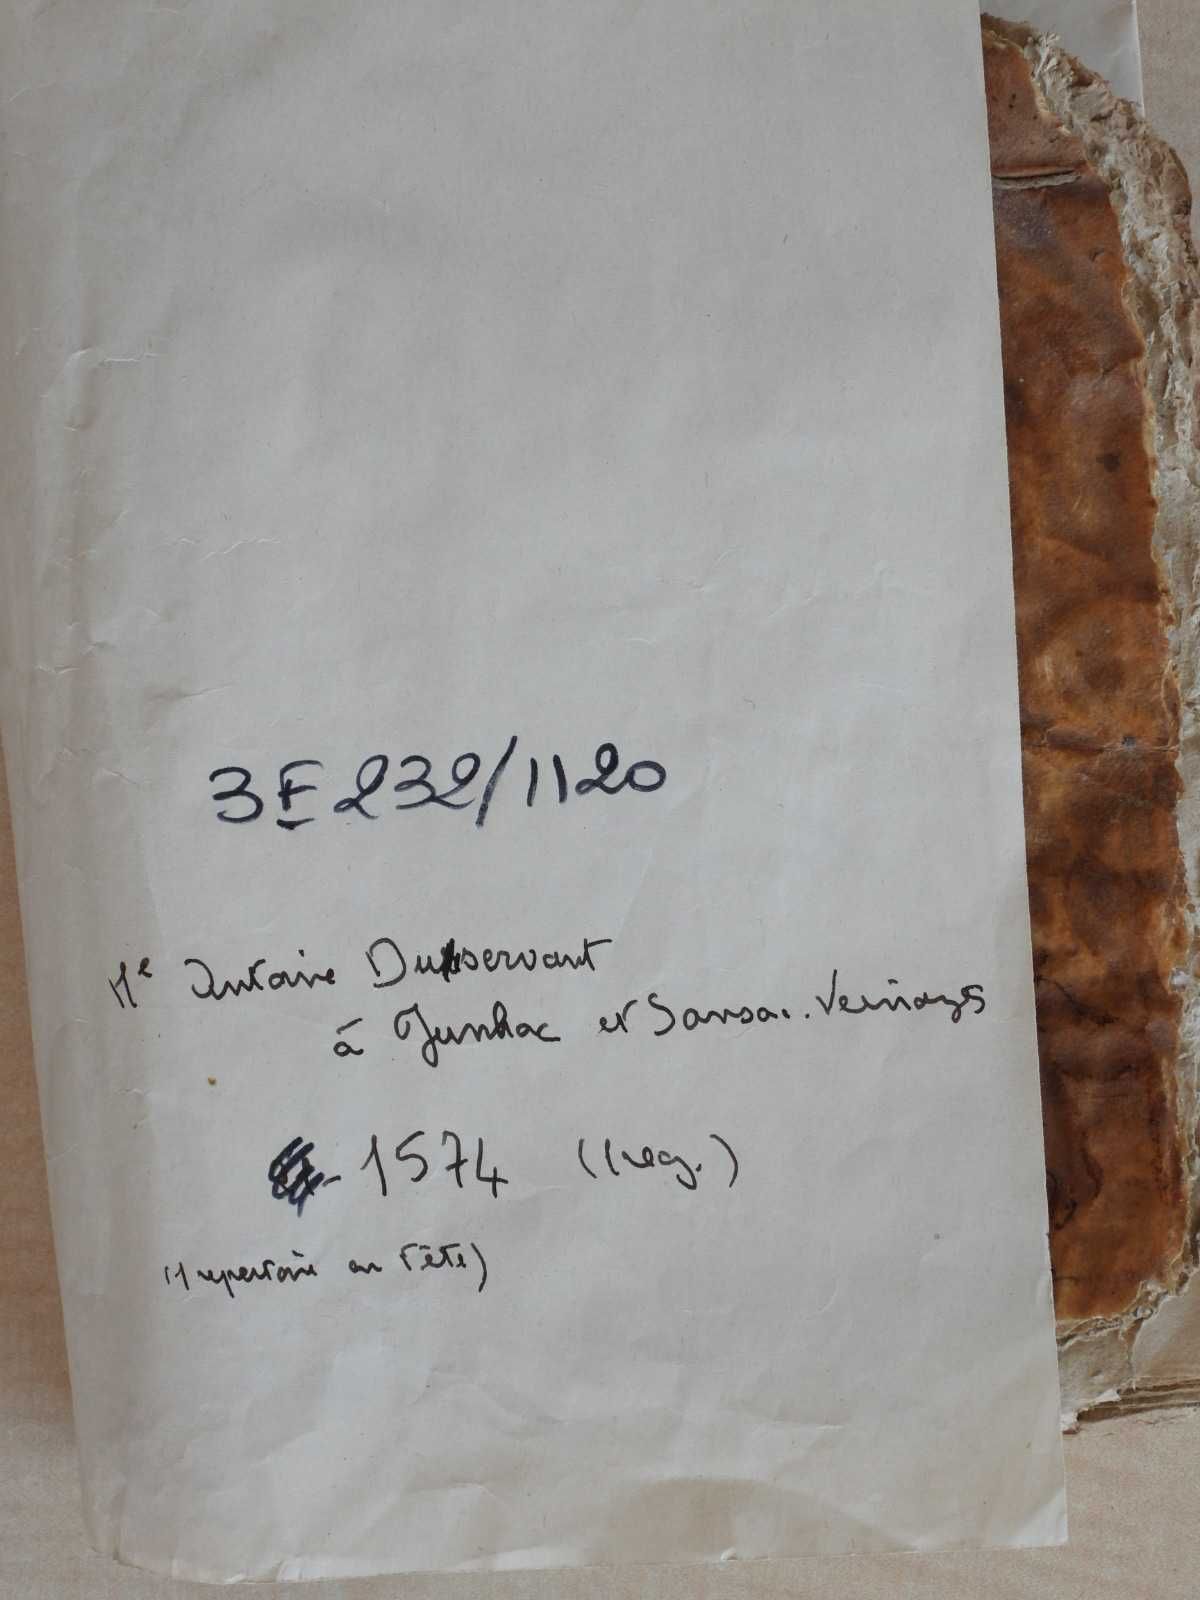 3 E 232/1120
Me Antoine Duservant
à Junhac et Sansac-Veinazès
1574 (1 reg.)
(1 repertoire en tête)